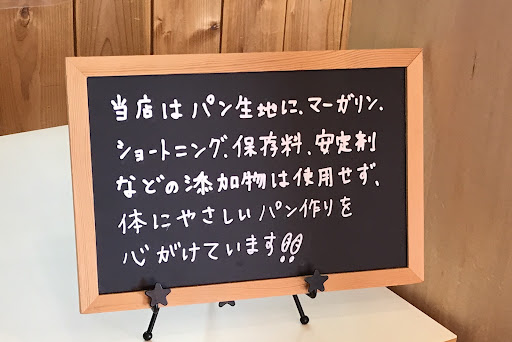 当店は パン生地に、マーガリン、
ショートニング、保存料、安定剤
などの添加物は使用せず、
体にやさしいパン作りを
心がけています!!